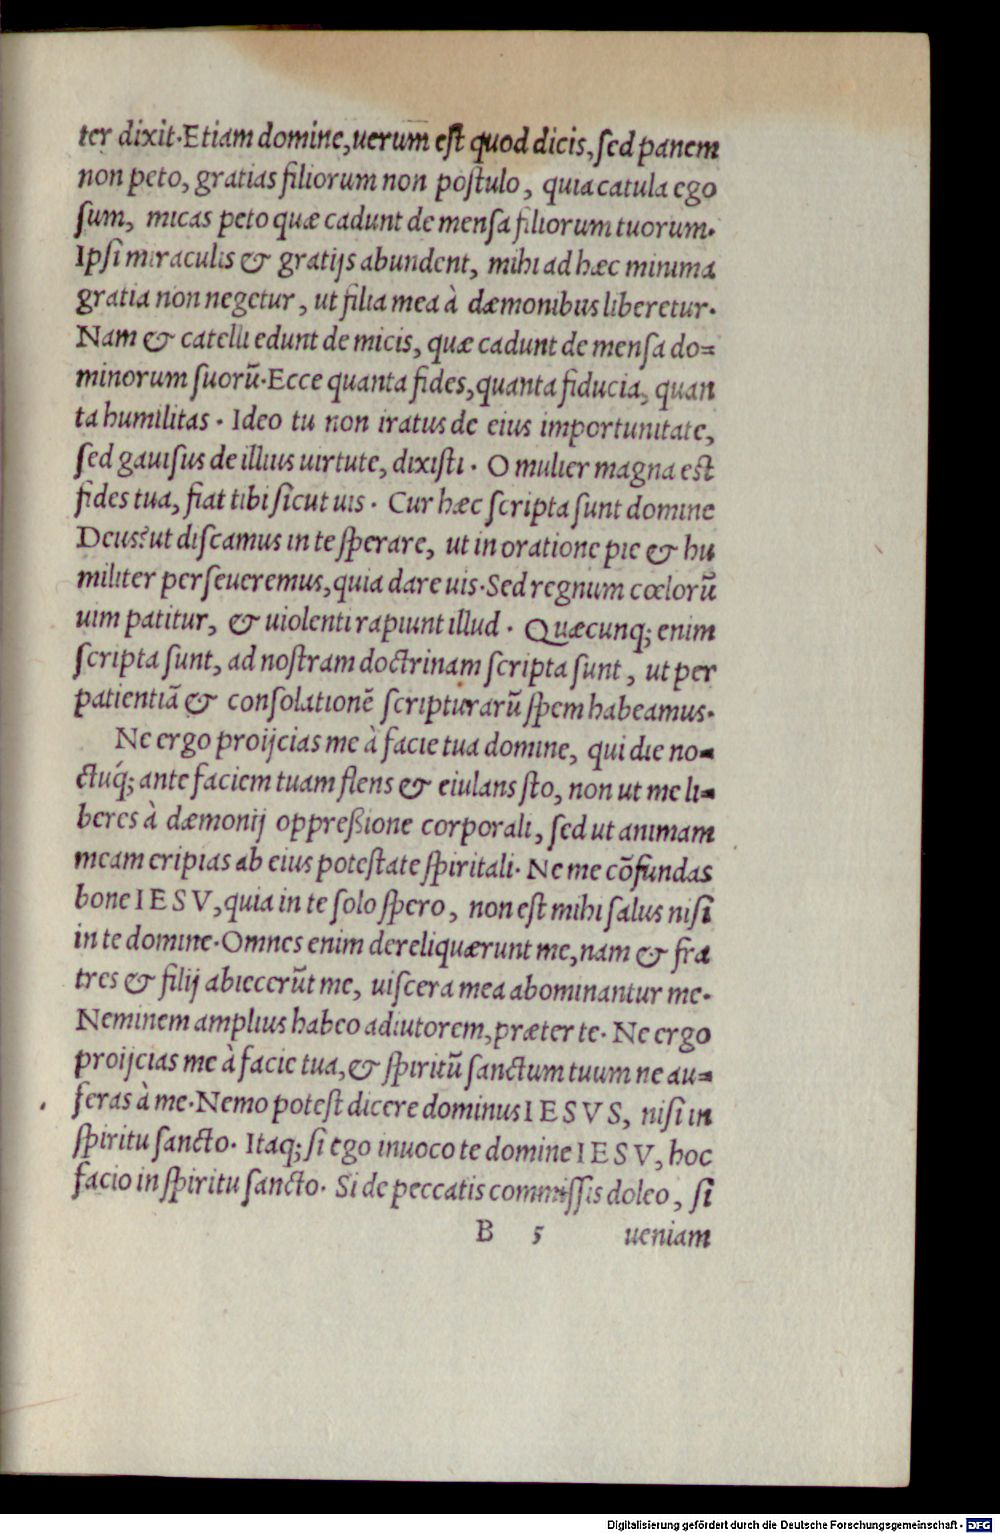 ter dixit. Etiam domine, uerum est quod dicis, sed panem
non peto, gratias filiorum non postulo, quia catula ego
sum, micas peto quæ cadunt de mensa filiorum tuorum.
Ipsi miraculis & gratijs abundent, mihi ad hæc minima
gratia non negetur, ut filia mea à dæmonibus liberetur.
Nam & catelli edunt de micis, quæ cadunt de mensa do=
minorum suorũ. Ecce quanta fides, quanta fiducia, quan
ta humilitas. Ideo tu non iratus de eius importunitate,
sed gauisus de illius uirtute, dixisti. O mulier magna est
fides tua, fiat tibi sicut uis. Cur hæc scripta sunt domine
Deus? ut discamus in te sperare, ut in oratione pie & hu
militer perseueremus, quia dare uis. Sed regnum cœlorũ
uim patitur, & uiolenti rapiunt illud. Quæcunq; enim
scripta sunt, ad nostram doctrinam scripta sunt, ut per
patientiã & consolationẽ scripturarũ spem habeamus.
Ne ergo proijcias me à facie tua domine, qui die no=
ctuq́; ante faciem tuam flens & eiulans sto, non ut me li=
beres à dæmonij oppreßione corporali, sed ut animam
meam eripias ab eius potestate spiritali. Ne me cõfundas
bone IESV, quia in te solo spero, non est mihi salus nisi
in te domine. Omnes enim dereliquærunt me, nam & fra
tres & filij abiecerũt me, uiscera mea abominantur me.
Neminem amplius habeo adiutorem, præter te. Ne ergo
proijcias me à facie tua, & spiritũ sanctum tuum ne au=
feras à me. Nemo potest dicere dominus IESVS, nisi in
spiritu sancto. Itaq; si ego inuoco te domine IESV, hoc
facio in spiritu sancto. Si de peccatis commissis doleo, si
B 5 ueniam
Digitalisierung gefördert durch die Deutsche Forschungsgemeinschaft - DFG